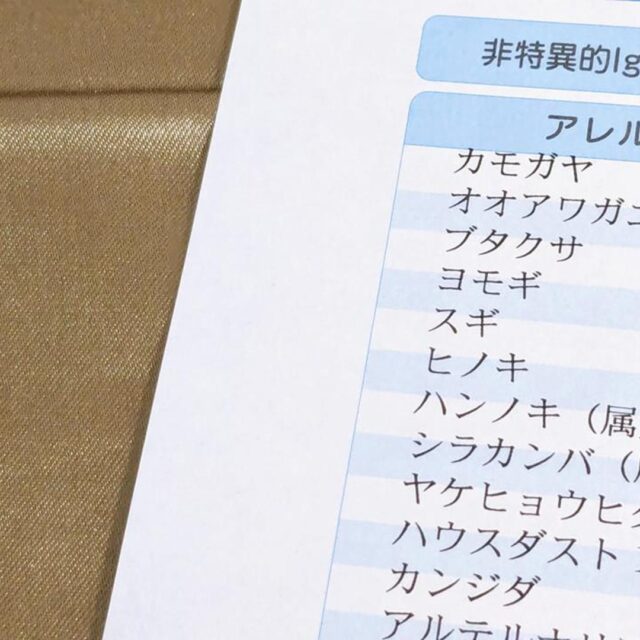 非特異的Ig
アレル
カモガヤ
オオアワガエ
ブタクサ
ヨモギ
スギ
ヒノキ
ハンノキ（属
シラカンバ（
ヤケヒョウヒ
ハウスダスト
カンジダ
アルテルナリ